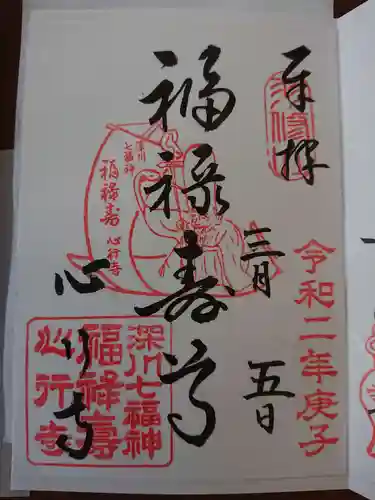 奉拝
三月五日
令和二年庚子
福禄寿尊
心行寺
深川
七福神
福禄寿
心行寺
深川七福神
福祿壽
心行寺